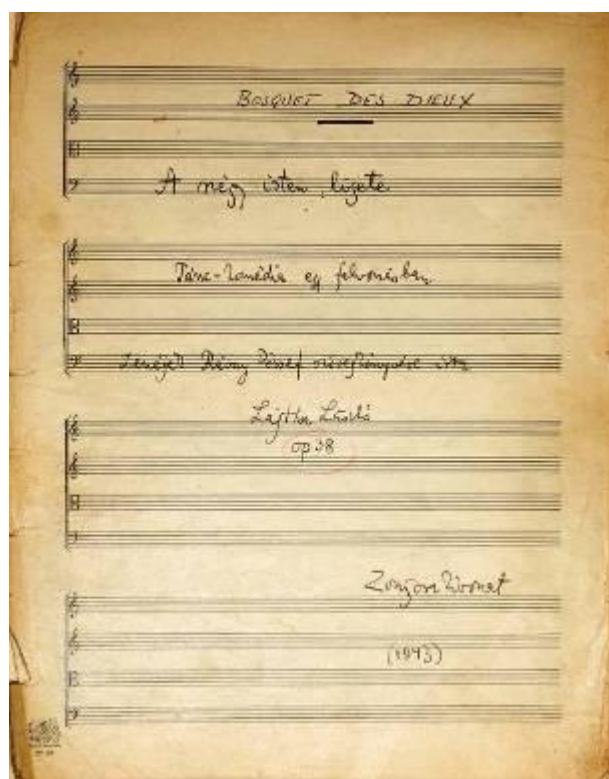 BOSQUET DES DIEUX
A négy isten ligete
Tánc-komédia egy felvonásban
Zenéjét Révay József szövegkönyvére írta
Lajtha László
op 38
Zongora kivonat
(1943)